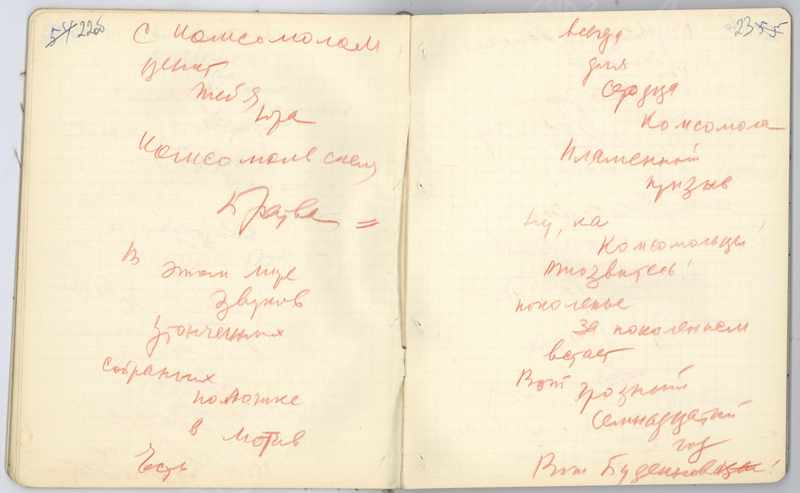 22об
С Комсомолом
Тебя
Комсомолс
Братва =
В
этом мире
звуков
Утонченных
собранных
поэтами
в мотив
Есть
23
всегда
для
Сердца
Комсомола
Пламенный
призыв
Ну, ка
Комсомольцы!
Отозвитесь!
поколенье
За поколеньем
встает
Вот грозный
Семнадцатый
год
Вот Буденновцы!